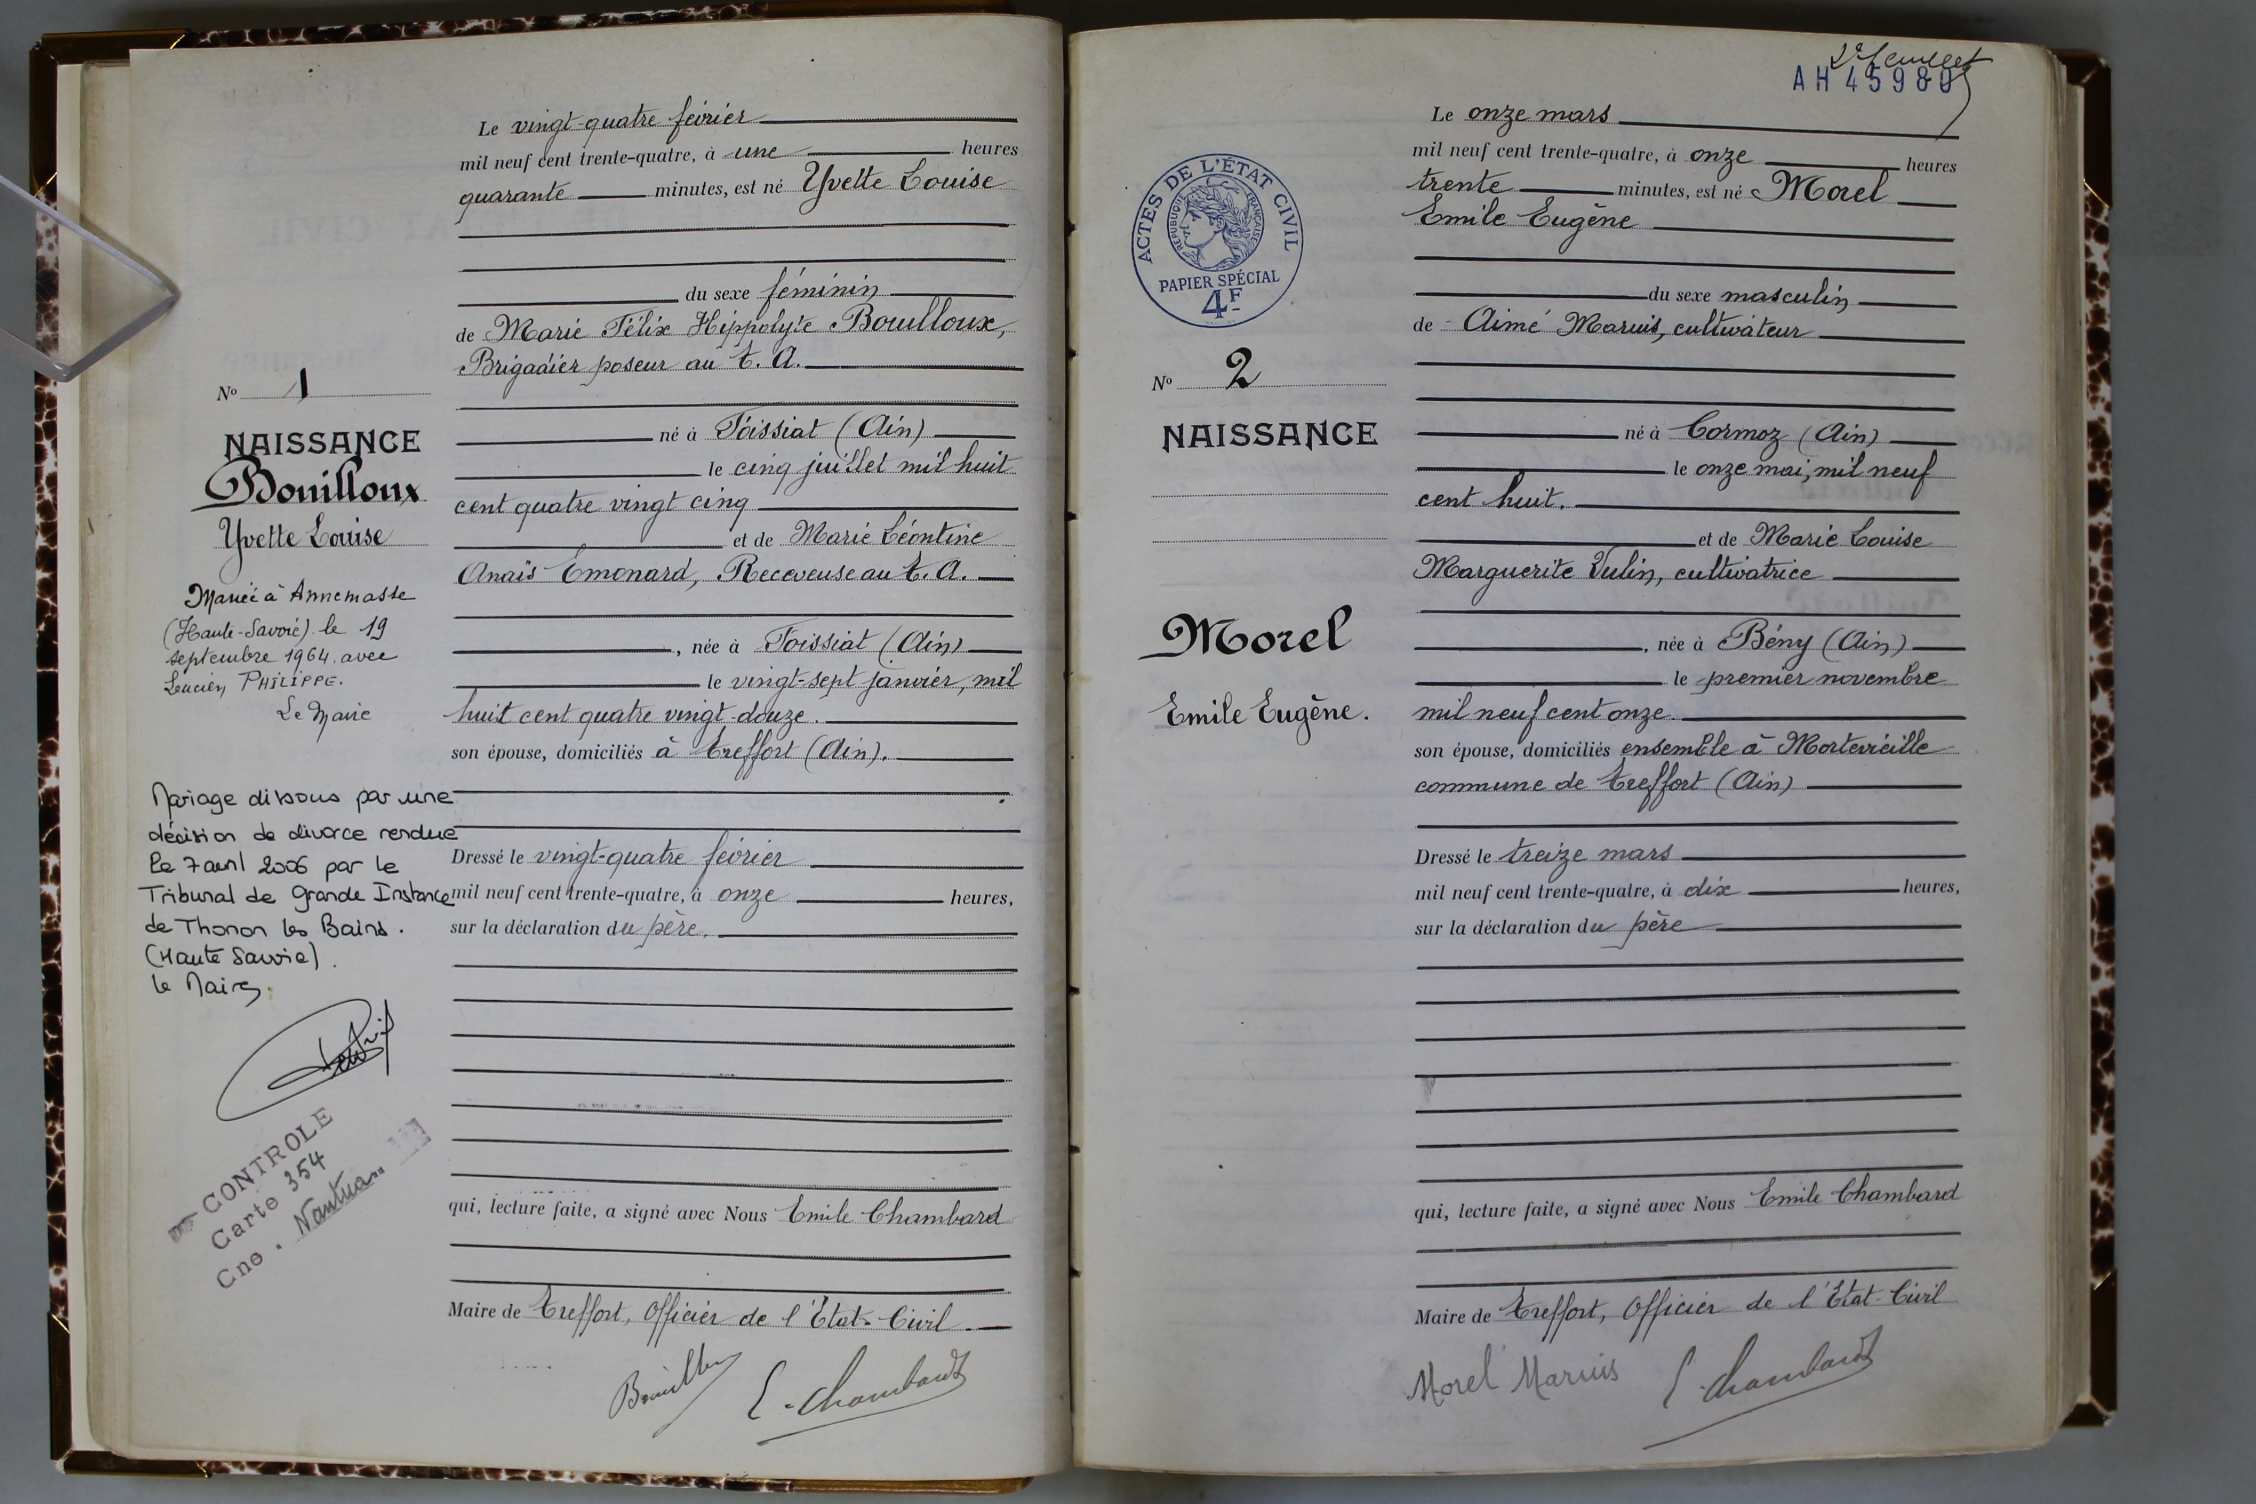 Le vingt-quatre février
mil neuf cent trente-quatre, à une heures
quarante minutes, est né Yvette Louise
du sexe féminin
de Marie Félix Hippolyte Bouilloux,
Brigadier poseur au t. A.
né à Toissiat (Ain)
le cinq juillet mil huit
cent quatre vingt cinq
et de Marie Léontine
Anaïs Emonard, Receveuse au t. A.
, née à Toissiat (Ain)
le vingt-sept janvier, mil
huit cent quatre vingt-douze.
son épouse, domiciliés à Treffort (Ain).
Dressé le vingt-quatre février
mil neuf cent trente-quatre, à onze heures,
sur la déclaration du père.
qui, lecture faite, a signé avec Nous Emile Chambard
Maire de Treffort, Officier de l'Etat-Civil.
E. Chambard
No 1
NAISSANCE
Bouilloux
Yvette Louise
Mariée à Annemasse
(Haute-Savoie) le 19
septembre 1964 avec
Lucien PHILIPPE.
Le Maire
Mariage dissous par une
décision de divorce rendue
le 7 avril 2006 par le
Tribunal de Grande Instance
de Thonon les Bains.
(Haute Savoie).
le Maire,
CONTROLE
Carte 354
Cne. Nantua
2e feuillet
AH 45980
Le onze mars
mil neuf cent trente-quatre, à onze heures
trente minutes, est né Morel
Emile Eugène
du sexe masculin
de Aimé Marius, cultivateur
né à Cormoz (Ain)
le onze mai, mil neuf
cent huit.
et de Marie Louise
Marguerite Vulin, cultivatrice
, née à Bény (Ain)
le premier novembre
mil neuf cent onze.
son épouse, domiciliés ensemble à Mortevieille
commune de Treffort (Ain)
Dressé le treize mars
mil neuf cent trente-quatre, à dix heures,
sur la déclaration du père
qui, lecture faite, a signé avec Nous Emile Chambard
Maire de Treffort, Officier de l'Etat-Civil
Morel Marius E. Chambard
ACTES DE L'ÉTAT CIVIL
RÉPUBLIQUE FRANÇAISE
PAPIER SPÉCIAL
4F
No 2
NAISSANCE
Morel
Emile Eugène.